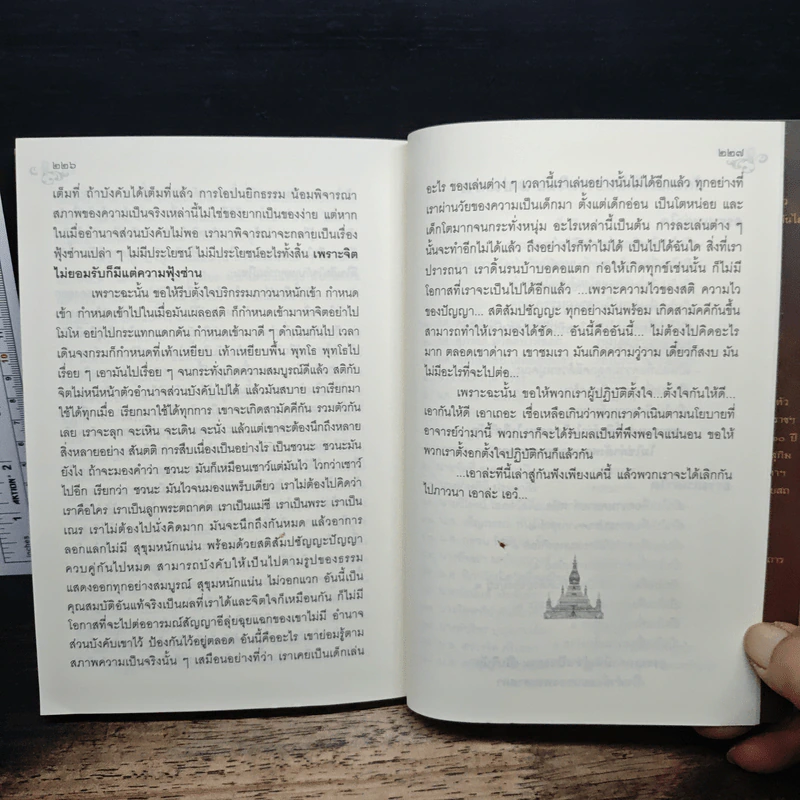 ๒๒๖
เต็มที่ ถ้าบังคับได้เต็มที่แล้ว การโอปนยิกธรรม น้อมพิจารณา
สภาพของความเป็นจริงเหล่านี้ไม่ใช่ของยากเป็นของง่าย แต่หาก
ในเมื่ออำนาจส่วนบังคับไม่พอ เรามาพิจารณาจะกลายเป็นเรื่อง
ฟุ้งซ่านเปล่า ๆ ไม่มีประโยชน์ ไม่มีประโยชน์อะไรทั้งสิ้น เพราะจิต
ไม่ยอมรับก็มีแต่ความฟุ้งซ่าน
เพราะฉะนั้น ขอให้รีบตั้งใจบริกรรมภาวนาหนักเข้า กำหนด
เข้า กำหนดเข้าไปในเมื่อมันเผลอสติ กำหนดเข้ามาหาจิตอย่าไป
โมโห อย่าไปกระแทกแดกดัน กำหนดเข้ามาดี ๆ ดำเนินกันไป เวลา
เดินจงกรมก็กำหนดที่เท้าเหยียบ เท้าเหยียบพื้น พุทโธ พุทโธไป
เรื่อย ๆ เอามันไปเรื่อย ๆ จนกระทั่งเกิดความสมบูรณ์ดีแล้ว สติกับ
จิตไม่หนีหน้าตัวอำนาจส่วนบังคับไปได้ แล้วมันสบาย เราเรียกมา
ใช้ได้ทุกเมื่อ เรียกมาใช้ได้ทุกการ เขาจะเกิดสามัคคีกัน รวมตัวกัน
เลย เราจะลุก จะเหิน จะเดิน จะนั่ง แล้วแต่เขาจะต้องนึกถึงหลาย
สิ่งหลายอย่าง สันตติ การสืบเนื่องเป็นอย่างไร เป็นชวนะ ชวนะมัน
ยังไง ถ้าจะมองคำว่า ชวนะ มันก็เหมือนเชาว์แต่มันไว ไวกว่าเชาว์
ไปอีก เรียกว่า ชวนะ มันไวจนมองแพร็บเดียว เราไม่ต้องไปคิดว่า
เราคือใคร เราเป็นลูกพระตถาคต เราเป็นแม่ชี เราเป็นพระ เราเป็น
เณร เราไม่ต้องไปนั่งคิดมาก มันจะนึกถึงกันหมด แล้วอาการ
ลอกแลกไม่มี สุขุมหนักแน่น พร้อมด้วยสติสัมปชัญญะปัญญา
ควบคู่กันไปหมด สามารถบังคับให้เป็นไปตามรูปของธรรม
แสดงออกทุกอย่างสมบูรณ์ สุขุมหนักแน่น ไม่วอกแวก อันนี้เป็น
คุณสมบัติอันแท้จริงเป็นผลที่เราได้และจิตใจก็เหมือนกัน ก็ไม่มี
โอกาสที่จะไปต่ออารมณ์สัญญาอีลุ่ยฉุยแฉกของเขาไม่มี อำนาจ
ส่วนบังคับเขาไว้ ป้องกันไว้อยู่ตลอด อันนี้คืออะไร เขาย่อมรู้ตาม
สภาพความเป็นจริงนั้น ๆ เสมือนอย่างที่ว่า เราเคยเป็นเด็กเล่น
๒๒๗
อะไร ของเล่นต่าง ๆ เวลานี้เราเล่นอย่างนั้นไม่ได้อีกแล้ว ทุกอย่างที่
เราผ่านวัยของความเป็นเด็กมา ตั้งแต่เด็กอ่อน เป็นโตหน่อย และ
เด็กโตมากจนกระทั่งหนุ่ม อะไรเหล่านี้เป็นต้น การละเล่นต่าง ๆ
นั้นจะทำอีกไม่ได้แล้ว ถึงอย่างไรก็ทำไม่ได้ เป็นไปได้ฉันใด สิ่งที่เรา
ปรารถนา เราดิ้นรนบ้าบอคอแตก ก่อให้เกิดทุกข์เช่นนั้น ก็ไม่มี
โอกาสที่เราจะเป็นไปได้อีกแล้ว ...เพราะความไวของสติ ความไว
ของปัญญา... สติสัมปชัญญะ ทุกอย่างมันพร้อม เกิดสามัคคีกันขึ้น
สามารถทำให้เรามองได้ชัด... อันนี้คืออันนี้... ไม่ต้องไปคิดอะไร
มาก ตลอดเขาด่าเรา เขาชมเรา มันเกิดความวู่วาม เดี๋ยวก็สงบ มัน
ไม่มีอะไรที่จะไปต่อ...
เพราะฉะนั้น ขอให้พวกเราผู้ปฏิบัติตั้งใจ...ตั้งใจกันให้ดี...
เอากันให้ดี เอาเถอะ เชื่อเหลือเกินว่าพวกเราดำเนินตามนโยบายที่
อาจารย์ว่ามานี้ พวกเราก็จะได้รับผลเป็นที่พึงพอใจแน่นอน ขอให้
พวกเราตั้งอกตั้งใจปฏิบัติกันก็แล้วกัน
...เอาล่ะที่นี้เล่าสู่กันฟังเพียงแค่นี้ แล้วพวกเราจะได้เลิกกัน
ไปภาวนา เอาล่ะ เอวํ...